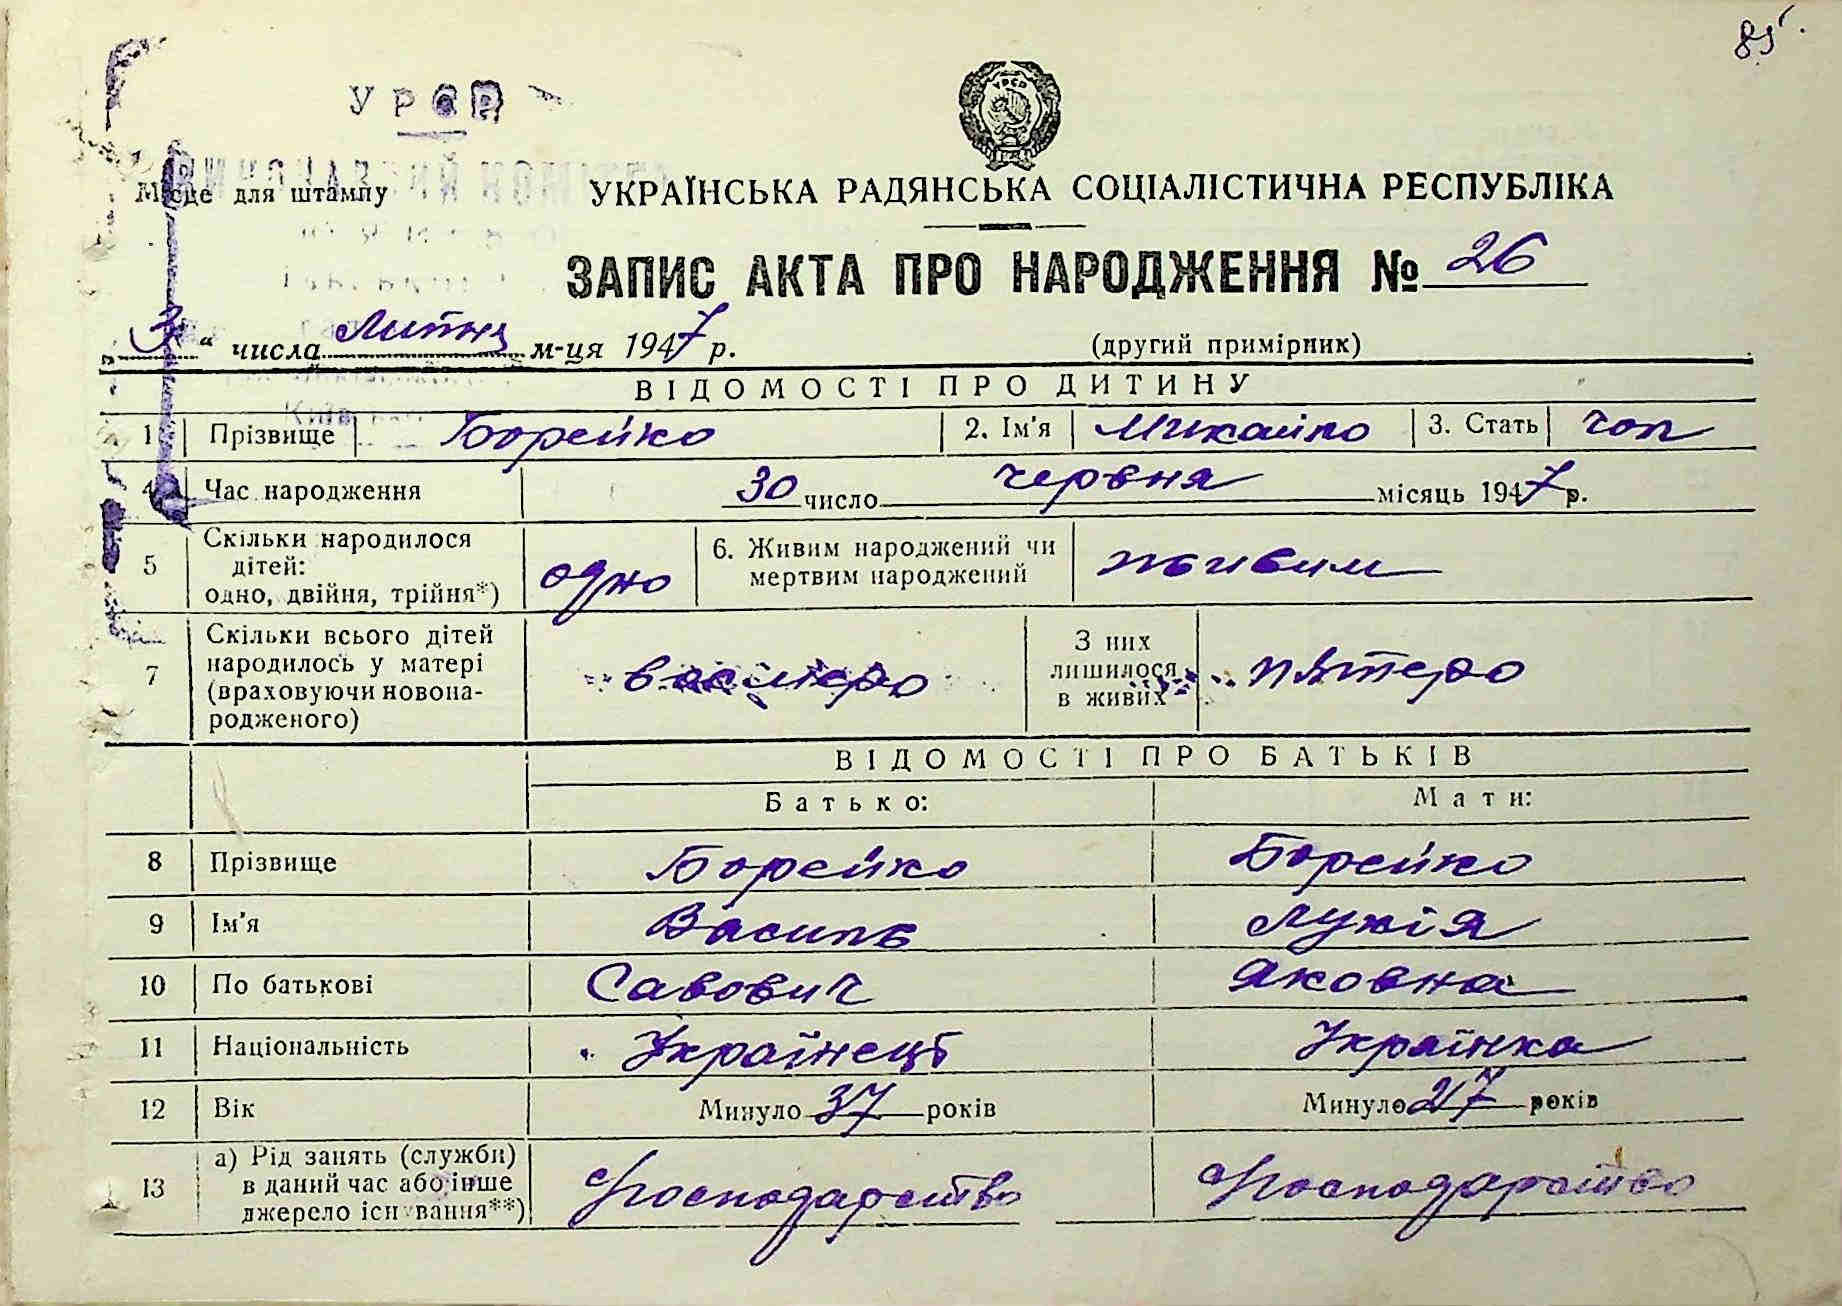 85.
УРСР
УРСР
ВИКОНАВЧИЙ КОМІТЕТ
Місце для штампу
УКРАЇНСЬКА РАДЯНСЬКА СОЦІАЛІСТИЧНА РЕСПУБЛІКА
ЗАПИС АКТА ПРО НАРОДЖЕННЯ № 26
„3“ числа Липня м-ця 1947 р. (другий примірник)
ВІДОМОСТІ ПРО ДИТИНУ
1 Прізвище Борейко 2. Ім'я Михайло 3. Стать чол
4 Час народження 30 число червня місяць 1947 р.
5 Скільки народилося дітей: одно, двійня, трійня*) одно 6. Живим народжений чи мертвим народжений живим
7 Скільки всього дітей народилось у матері (враховуючи новонародженого) З них лишилося в живих п'ятеро
ВІДОМОСТІ ПРО БАТЬКІВ
Батько: Мати:
8 Прізвище Борейко Борейко
9 Ім'я Василь Лукія
10 По батькові Савович Яковна
11 Національність Українець Українка
12 Вік Минуло 37 років Минуло 27 років
13 а) Рід занять (служби) в даний час або інше джерело існування**) Господарство Господарство